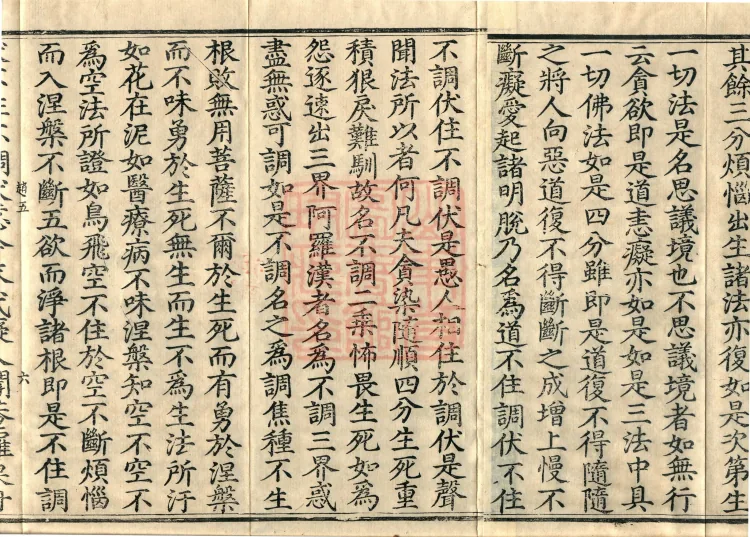 其餘三分煩惱出生諸法亦復如是次第生
一切法是名思議境也不思議境者如無行
云貪欲即是道恚癡亦如是如是三法中具
一切佛法如是四分雖即是道復不得隨隨
之將人向惡道復不得斷斷之成增上慢不
斷癡愛起諸明脫乃名爲道不住調伏不住
不調伏住不調伏是愚人相住於調伏是聲
聞法所以者何凡夫貪染隨順四分生死重
積狠戾難馴故名不調二乘怖畏生死如爲
怨逐速出三界阿羅漢者名爲不調三界惑
盡無惑可調如是不調名之爲調焦種不生
根敗無用菩薩不爾於生死而有勇於涅槃
而不味勇於生死無生而生不爲生法所汙
如花在泥如醫療病不味涅槃知空不空不
爲空法所證如鳥飛空不住於空不斷煩惱
而入涅槃不斷五欲而淨諸根即是不住調
趙五 六